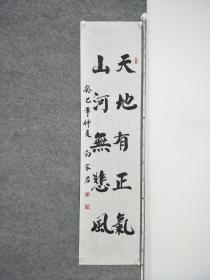 天地有正氣
山河無悲風
癸巳年仲夏